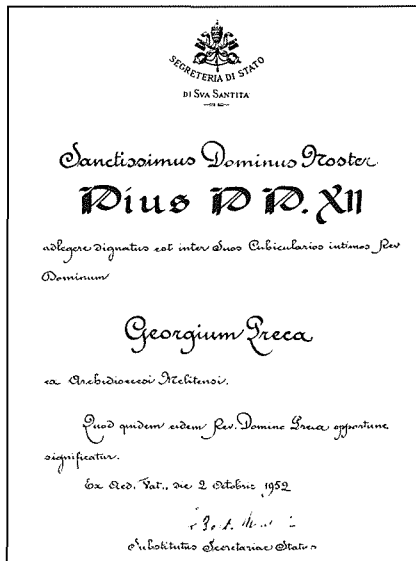 SEGRETERIA DI STATO
DI SVA SANTITÀ
Sanctissimus Dominus Noster
Pius PP. XII
adlegere dignatus est inter Suos Cubicularios intimos Rev
Dominum
Georgium Preca
ex Archidioecesi Melitensi.
Quod quidem eidem Rev. Domino Preca opportune
significatur.
Ex Aed. Vat., die 2 Octobris 1952
Substitutus Secretariae Status